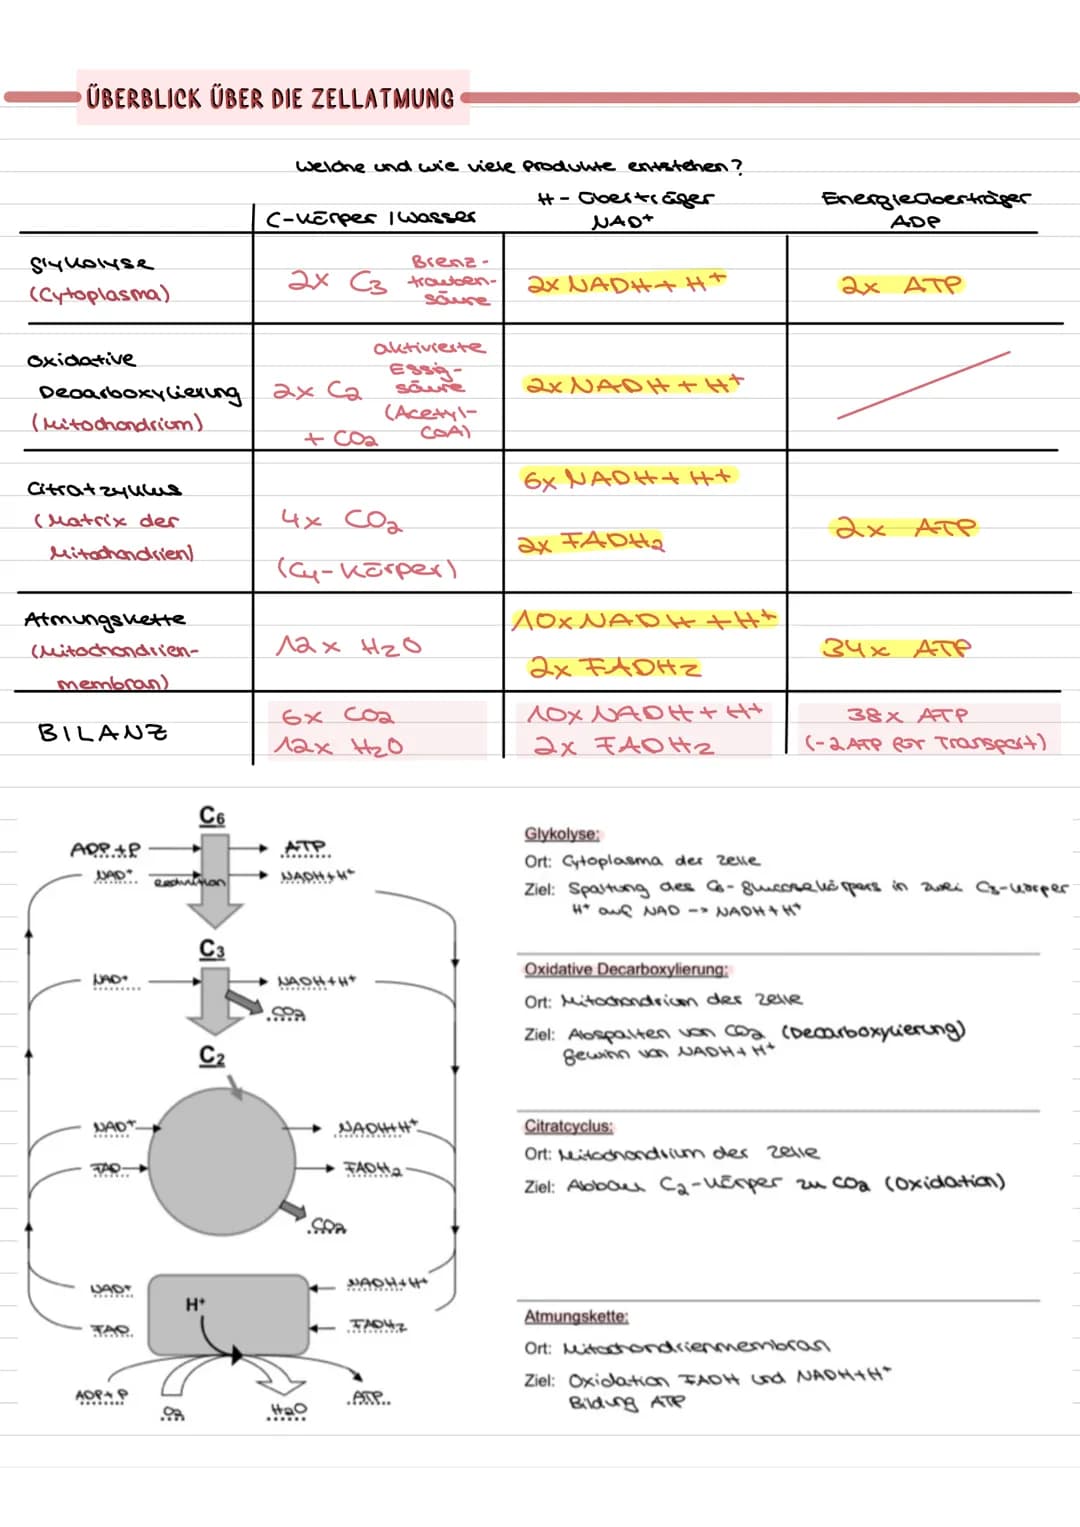 ÜBERBLICK ÜBER DIE ZELLATMUNG
Welche und wie viele Produkte entstehen?
C-Körper / Wasser
H-Überträger NAD+
Energieüberträger ADP
Glykolyse
(Cytoplasma)
2x C3
Brenz-
trauben-
säure
2x NADH + H+
2x ATP
Oxidative
Decarboxylierung
(Mitochondrium)
2x C2
+ CO2
aktivierte
Essig-
säure
(Acetyl-
CoA)
2x NADH + H+
Citratzyklus
(Matrix der
Mitochondrien)
4x CO2
(C4-Körper)
6x NADH + H+
2x FADH2
2x ATP
Atmungskette
(Mitochondrien-
membran)
12x H2O
10x NADH + H+
2x FADH2
34x ATP
BILANZ
6x CO2
12x H2O
10x NADH + H+
2x FADH2
38x ATP
(-2 ATP für Transport)
C6
ADP+P
ATP
NAD+
Reduktion
NADH+H+
C3
NAD+
NADH+H+
CO2
C2
NAD+
NADH+H+
FAD
FADH2
CO2
NAD+
NADH+H+
H+
FAD
FADH2
ADP+P
O2
H2O
ATP
Glykolyse:
Ort: Cytoplasma der Zelle
Ziel: Spaltung des C6-Glucosekörpers in zwei C3-Körper
H+ auf NAD --> NADH+H+
Oxidative Decarboxylierung:
Ort: Mitochondrium der Zelle
Ziel: Abspalten von CO2 (Decarboxylierung)
Gewinn von NADH+H+
Citratcyclus:
Ort: Mitochondrium der Zelle
Ziel: Abbau C2-Körper zu CO2 (Oxidation)
Atmungskette:
Ort: Mitochondrienmembran
Ziel: Oxidation FADH und NADH+H+
Bildung ATP